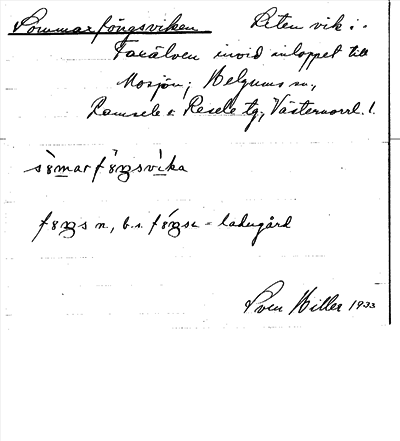 Sommarföngsviken Liten vik i
Faxälven invid inloppet till
Mosjön; Helgums sn,
Ramsele o. Resele tg, Västernorrl. l.
sòmarfö̀ŋsvìka
føŋs n, b.s. fǿŋse = ladugård
Sven Hiller 1933